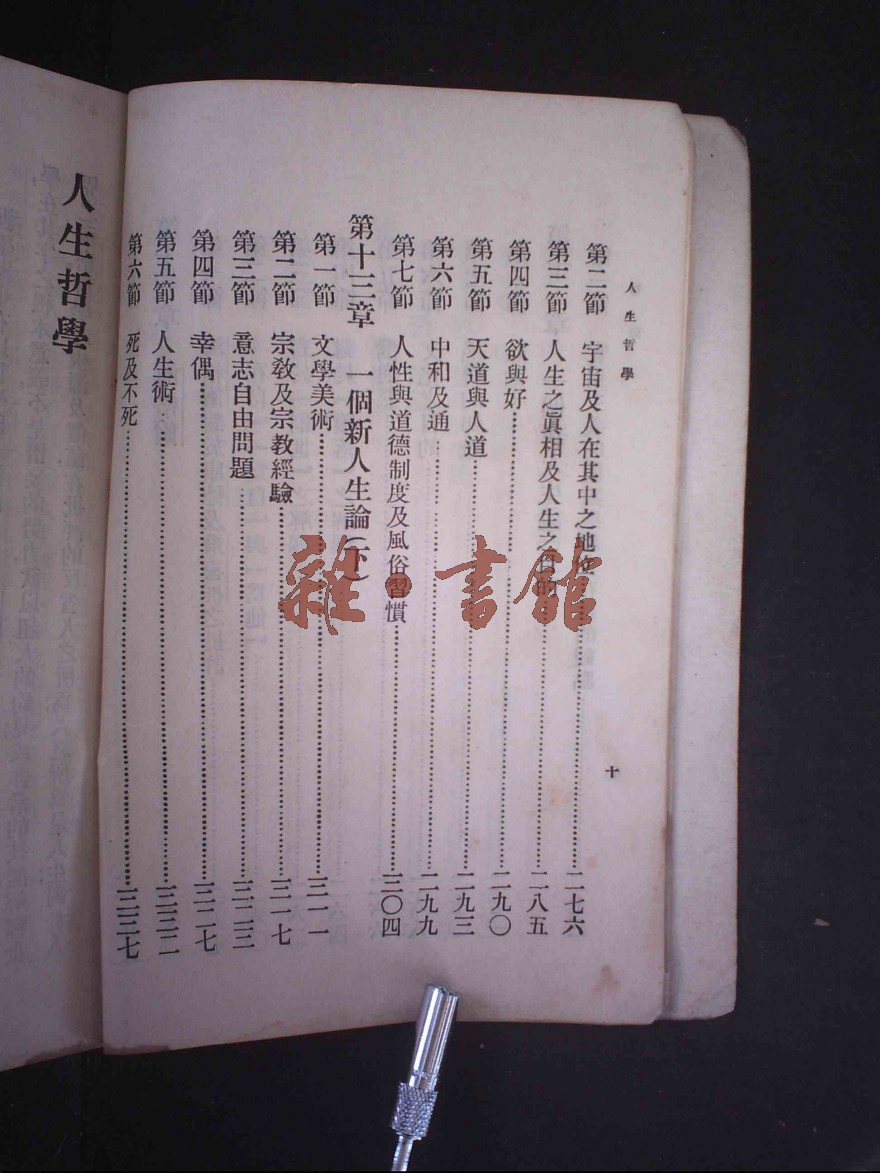 人生哲學
十
第二節 宇宙及人在其中之地位……二七六
第三節 人生之眞相及人生之目的……二八五
第四節 欲與好……二九〇
第五節 天道與人道……二九三
第六節 中和及通……二九九
第七節 人性與道德制度及風俗習慣……三〇四
第十三章 一個新人生論(下)
第一節 文學美術……三一一
第二節 宗教及宗教經驗……三一七
第三節 意志自由問題……三二三
第四節 幸偶……三二七
第五節 人生術……三三二
第六節 死及不死……三三七
人生哲學
雜·書館